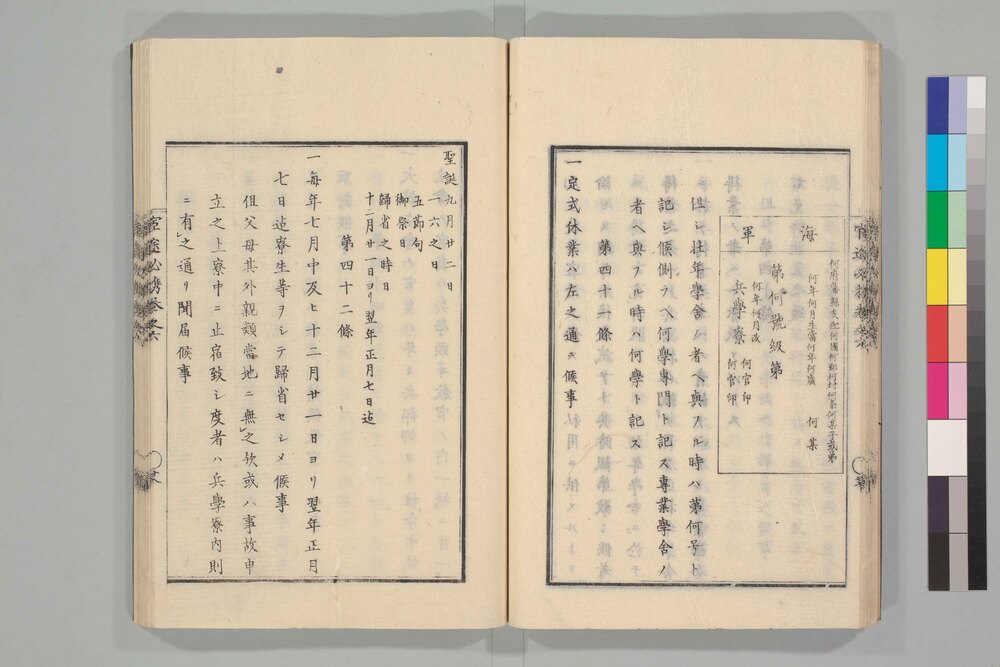 海軍
何府藩縣支配何國何郡何村何条何某子或弟
何年何月生當何年何歳
何某
第何號級第
何年何月改
兵學寮
何官印
何官印
但シ壮年學舎ノ者ヘ與フル時ハ第何号ト
記シ候側ラヘ何學専門ト記ス専業學舎ノ
者ヘ與フル時ハ何學ト記ス
第四十一條
一定式休業ハ左之通ニ候事
聖誕九月廿二日
一六之日
五節句
御祭日
歸省之時日
十二月廿一日ヨリ翌年正月七日迠
第四十二條
一每年七月中及ヒ十二月廿一日ヨリ翌年正月
七日迠寮生等ヲシテ歸省セシメ候事
但父母其外親類當地ニ無之欤或ハ事故申
立之上寮中ニ止宿致シ度者ハ兵學寮内則
ニ有之通リ聞届候事